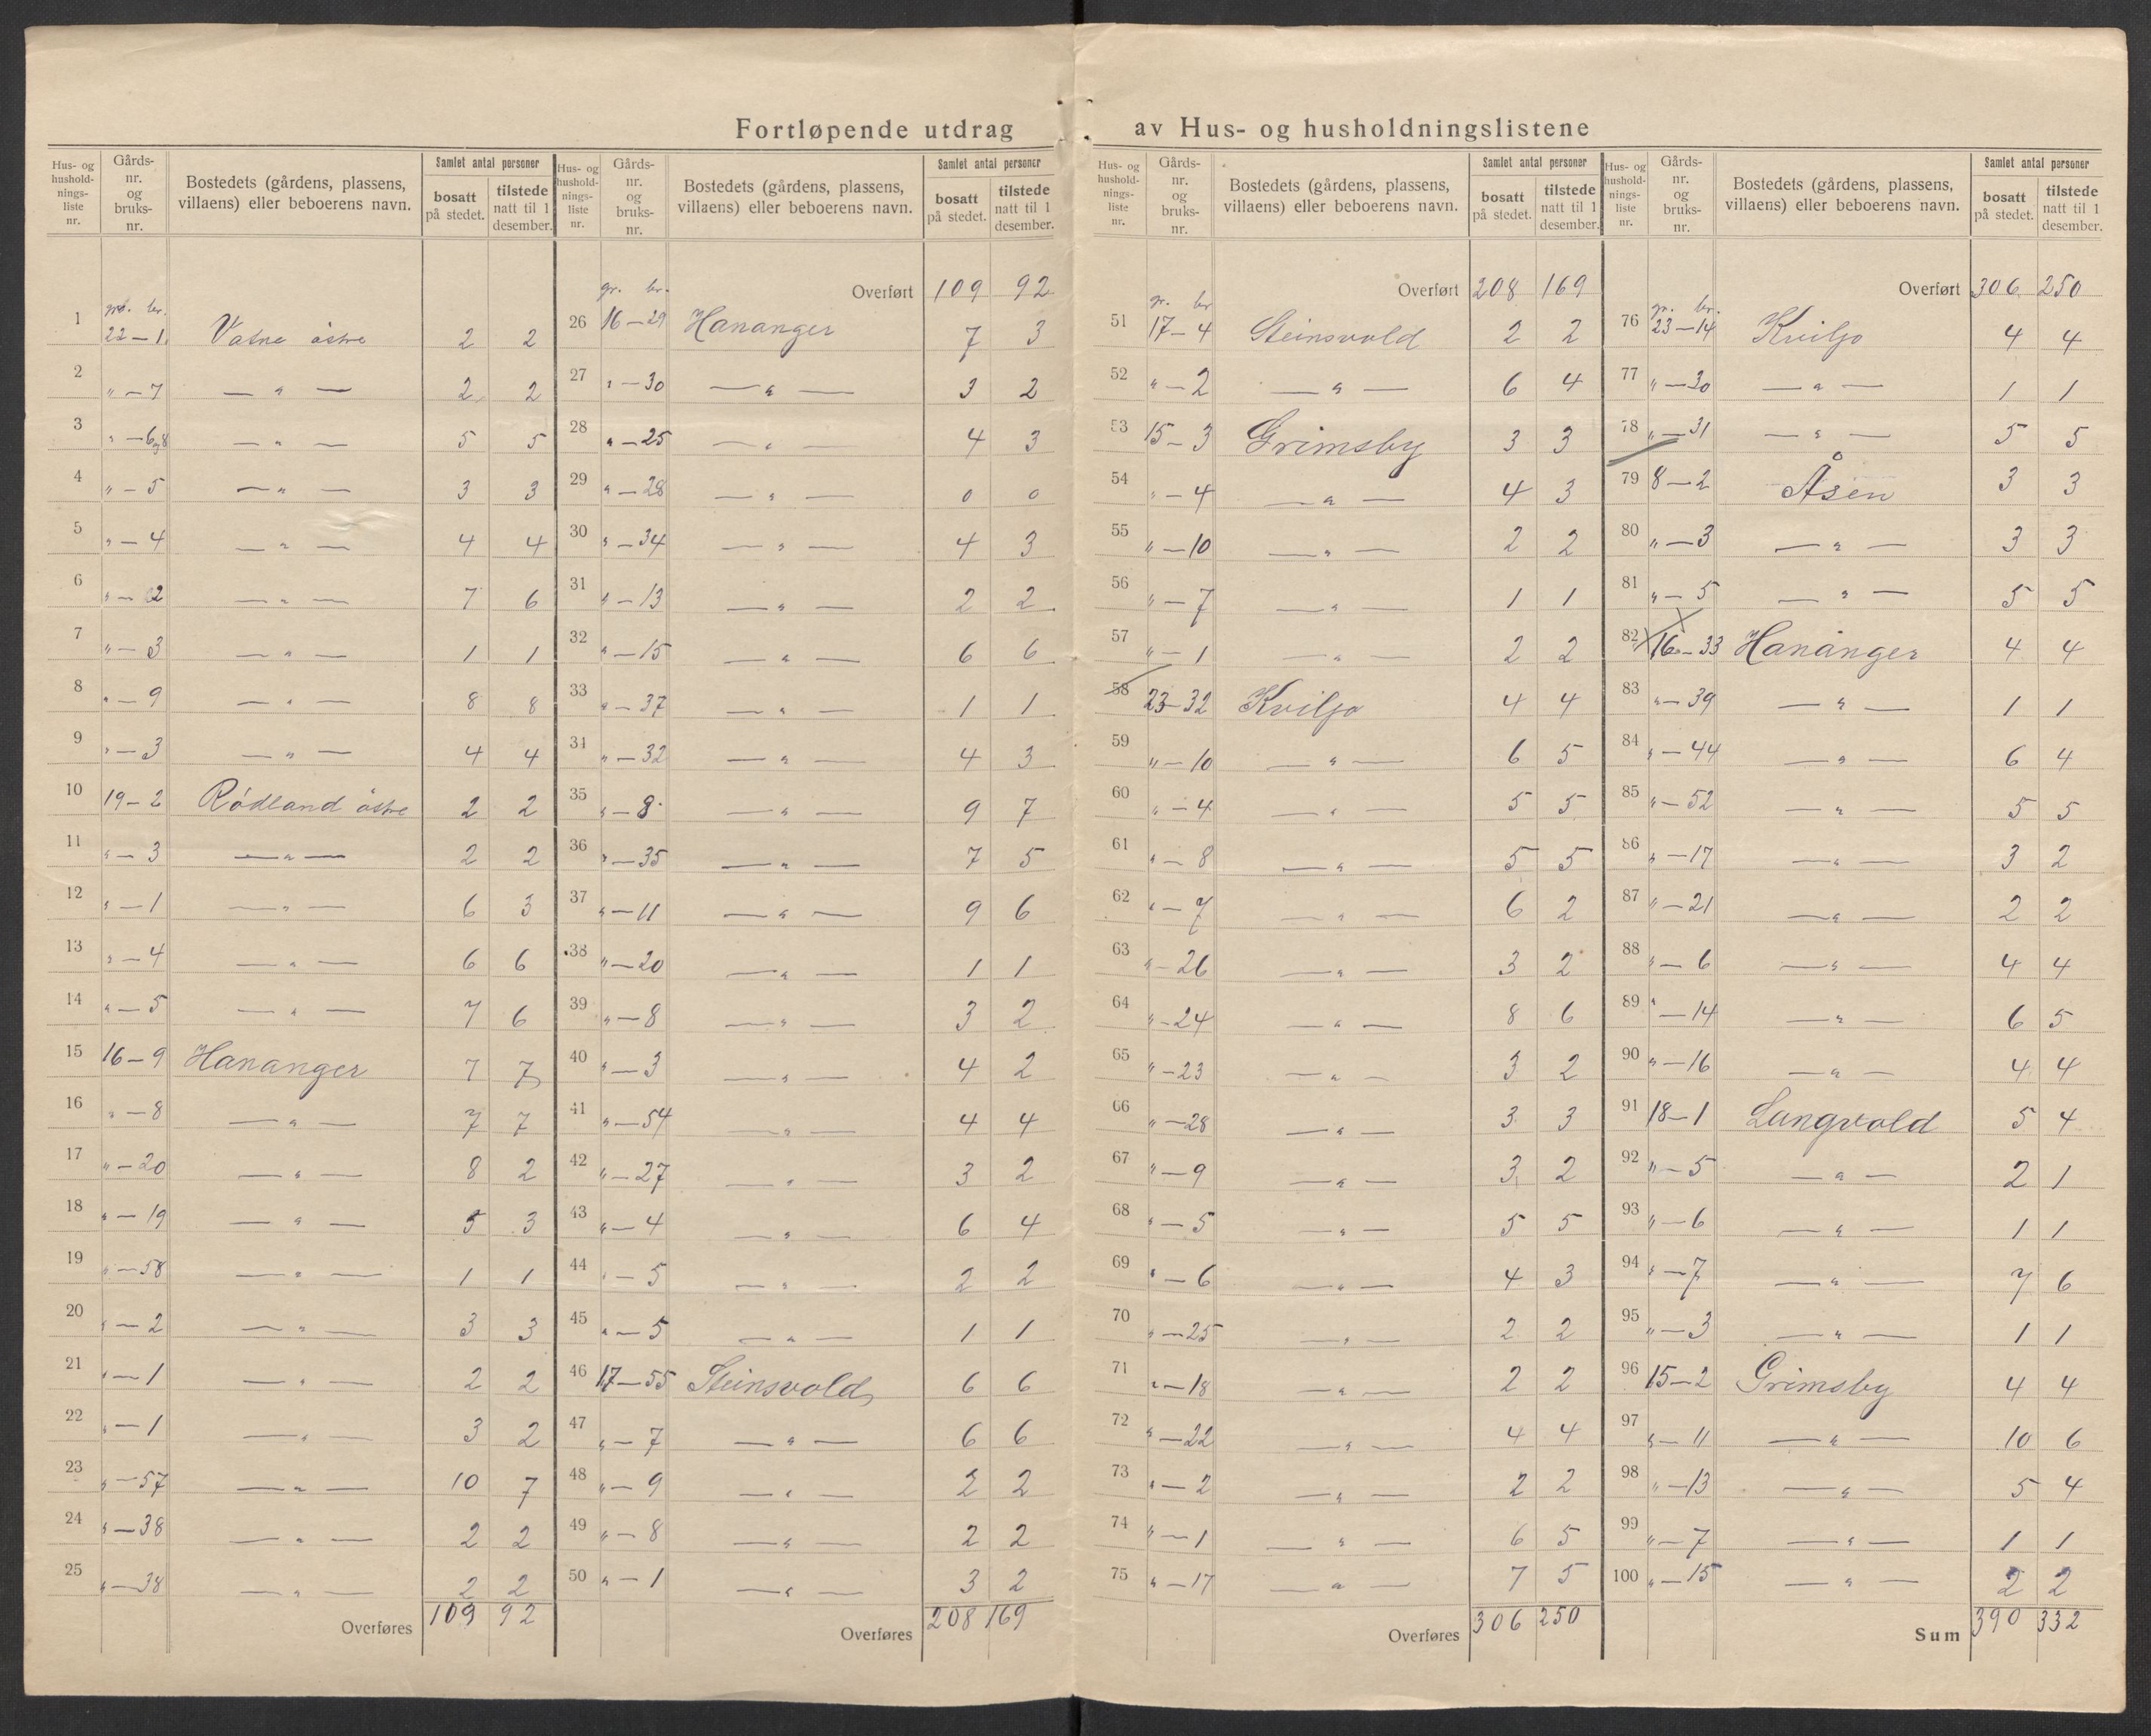 Fortløpende utdrag av Hus- og husholdningslistene
Hus- og hushold-nings-liste nr. | Gårds-nr. og bruks-nr. | Bostedets (gårdens, plassens, villaens) eller beboerens navn. | Samlet antal personer bosatt på stedet. | tilstede natt til 1 desember.
gr. br.
1 22 – 1 Vatne østre 2 2
2 " – 7 — " — 2 2
3 " – 6 og 8 — " — 5 5
4 " – 5 — " — 3 3
5 " – 4 — " — 4 4
6 " – 2 — " — 7 6
7 " – 3 — " — 1 1
8 " – 9 — " — 8 8
9 " – 3 — " — 4 4
10 19 – 2 Rødland østre 2 2
11 " – 3 — " — 2 2
12 " – 1 — " — 6 3
13 " – 4 — " — 6 6
14 " – 5 — " — 7 6
15 16 – 9 Hananger 7 7
16 " – 8 — " — 7 7
17 " – 20 — " — 8 2
18 " – 19 — " — 5 3
19 " – 58 — " — 1 1
20 " – 2 — " — 3 3
21 " – 1 — " — 2 2
22 " – 1 — " — 3 2
23 " – 57 — " — 10 7
24 " – 38 — " — 2 2
25 " – 38 — " — 2 2
Overføres 109 92
Hus- og hushold-nings-liste nr. | Gårds-nr. og bruks-nr. | Bostedets (gårdens, plassens, villaens) eller beboerens navn. | Samlet antal personer bosatt på stedet. | tilstede natt til 1 desember.
Overført 109 92
gr. br.
26 16 – 29 Hananger 7 3
27 " – 30 — " — 3 2
28 " – 25 — " — 4 3
29 " – 28 — " — 0 0
30 " – 34 — " — 4 3
31 " – 13 — " — 2 2
32 " – 15 — " — 6 6
33 " – 37 — " — 1 1
31 " – 32 — " — 4 3
35 " – 8 — " — 9 7
36 " – 35 — " — 7 5
37 " – 11 — " — 9 6
38 " – 20 — " — 1 1
39 " – 8 — " — 3 2
40 " – 3 — " — 4 2
41 " – 54 — " — 4 4
42 " – 27 — " — 3 2
43 " – 4 — " — 6 4
44 " – 5 — " — 2 2
45 " – 5 — " — 1 1
46 17 – 55 Steinsvold 6 6
47 " – 7 — " — 6 6
48 " – 9 — " — 2 2
49 " – 8 — " — 2 2
50 " – 1 — " — 3 2
Overføres 208 169
Hus- og hushold-nings-liste nr. | Gårds-nr. og bruks-nr. | Bostedets (gårdens, plassens, villaens) eller beboerens navn. | Samlet antal personer bosatt på stedet. | tilstede natt til 1 desember.
Overført 208 169
gr. br
51 17 – 4 Steinsvold 2 2
52 " – 2 — " — 6 4
53 15 – 3 Grimsby 3 3
54 " – 4 — " — 4 3
55 " – 10 — " — 2 2
56 " – 7 — " — 1 1
57 " – 1 — " — 2 2
58 23 – 32 Kviljo 4 4
59 " – 10 — " — 6 5
60 " – 4 — " — 5 5
61 " – 8 — " — 5 5
62 " – 7 — " — 6 2
63 " – 26 — " — 3 2
64 " – 24 — " — 8 6
65 " – 23 — " — 3 2
66 " – 28 — " — 3 3
67 " – 9 — " — 3 2
68 " – 5 — " — 5 5
69 " – 6 — " — 4 3
70 " – 25 — " — 2 2
71 " – 18 — " — 2 2
72 " – 22 — " — 4 4
73 " – 2 — " — 2 2
74 " – 1 — " — 6 5
75 " – 17 — " — 7 5
Overføres 306 250
Hus- og hushold-nings-liste nr. | Gårds-nr. og bruks-nr. | Bostedets (gårdens, plassens, villaens) eller beboerens navn. | Samlet antal personer bosatt på stedet. | tilstede natt til 1 desember.
Overført 306 250
gr. br.
76 23 – 14 Kviljo 4 4
77 " – 30 — " — 1 1
78 " – 31 — " — 5 5
79 8 – 2 Åsen 3 3
80 " – 3 — " — 3 3
81 " – 5 — " — 5 5
82 16 – 33 Hananger 4 4
83 " – 39 — " — 1 1
84 " – 44 — " — 6 4
85 " – 52 — " — 5 5
86 " – 17 — " — 3 2
87 " – 21 — " — 2 2
88 " – 6 — " — 4 4
89 " – 14 — " — 6 5
90 " – 16 — " — 4 4
91 18 – 1 Langvold 5 4
92 " – 5 — " — 2 1
93 " – 6 — " — 1 1
94 " – 7 — " — 7 6
95 " – 3 — " — 1 1
96 15 – 2 Grimsby 4 4
97 " – 11 — " — 10 6
98 " – 13 — " — 5 4
99 " – 7 — " — 1 1
100 " – 15 — " — 2 2
Sum 390 332